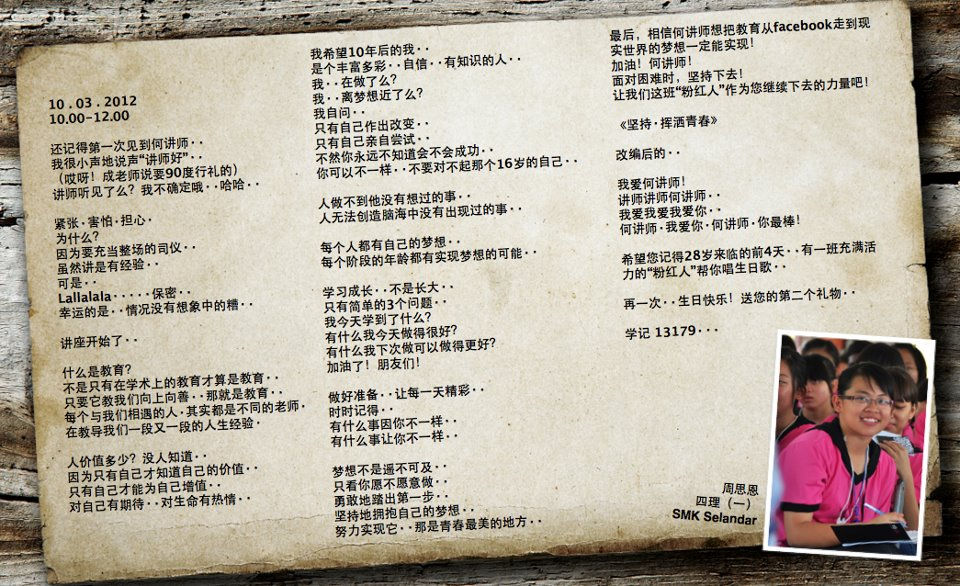 10 . 03 . 2012
10.00-12.00
还记得第一次见到何讲师··
我很小声地说声“讲师好”··
（哎呀！成老师说要90度行礼的）
讲师听见了么？我不确定哦··哈哈··
紧张·害怕·担心·
为什么？
因为要充当整场的司仪··
虽然讲是有经验··
可是··
Lallalala·····保密··
幸运的是··情况没有想象中的糟··
讲座开始了··
什么是教育？
不是只有在学术上的教育才算是教育··
只要它教我们向上向善··那就是教育··
每个与我们相遇的人·其实都是不同的老师·
在教导我们一段又一段的人生经验·
人价值多少？没人知道··
因为只有自己才知道自己的价值··
只有自己才能为自己增值··
对自己有期待··对生命有热情··
我希望10年后的我··
是个丰富多彩··自信··有知识的人··
我··在做了么？
我··离梦想近了么？
我自问··
只有自己作出改变··
只有自己亲自尝试··
不然你永远不知道会不会成功··
你可以不一样··不要对不起那个16岁的自己··
人做不到他没有想过的事··
人无法创造脑海中没有出现过的事··
每个人都有自己的梦想··
每个阶段的年龄都有实现梦想的可能··
学习成长··不是长大··
只有简单的3个问题··
我今天学到了什么？
有什么我今天做得很好？
有什么我下次做可以做得更好？
加油了！朋友们！
做好准备··让每一天精彩··
时时记得··
有什么事因你不一样··
有什么事让你不一样··
梦想不是遥不可及··
只看你愿不愿意做··
勇敢地踏出第一步··
坚持地拥抱自己的梦想··
努力实现它··那是青春最美的地方··
最后，相信何讲师想把教育从facebook走到现
实世界的梦想一定能实现！
加油！何讲师！
面对困难时，坚持下去！
让我们这班“粉红人”作为您继续下去的力量吧！
《坚持·挥洒青春》
改编后的··
我爱何讲师！
讲师讲师何讲师··
我爱我爱我爱你··
何讲师·我爱你·何讲师·你最棒！
希望您记得28岁来临的前4天··有一班充满活
力的“粉红人”帮你唱生日歌··
再一次··生日快乐！送您的第二个礼物··
学记 13179···
周思恩
四理（一）
SMK Selandar